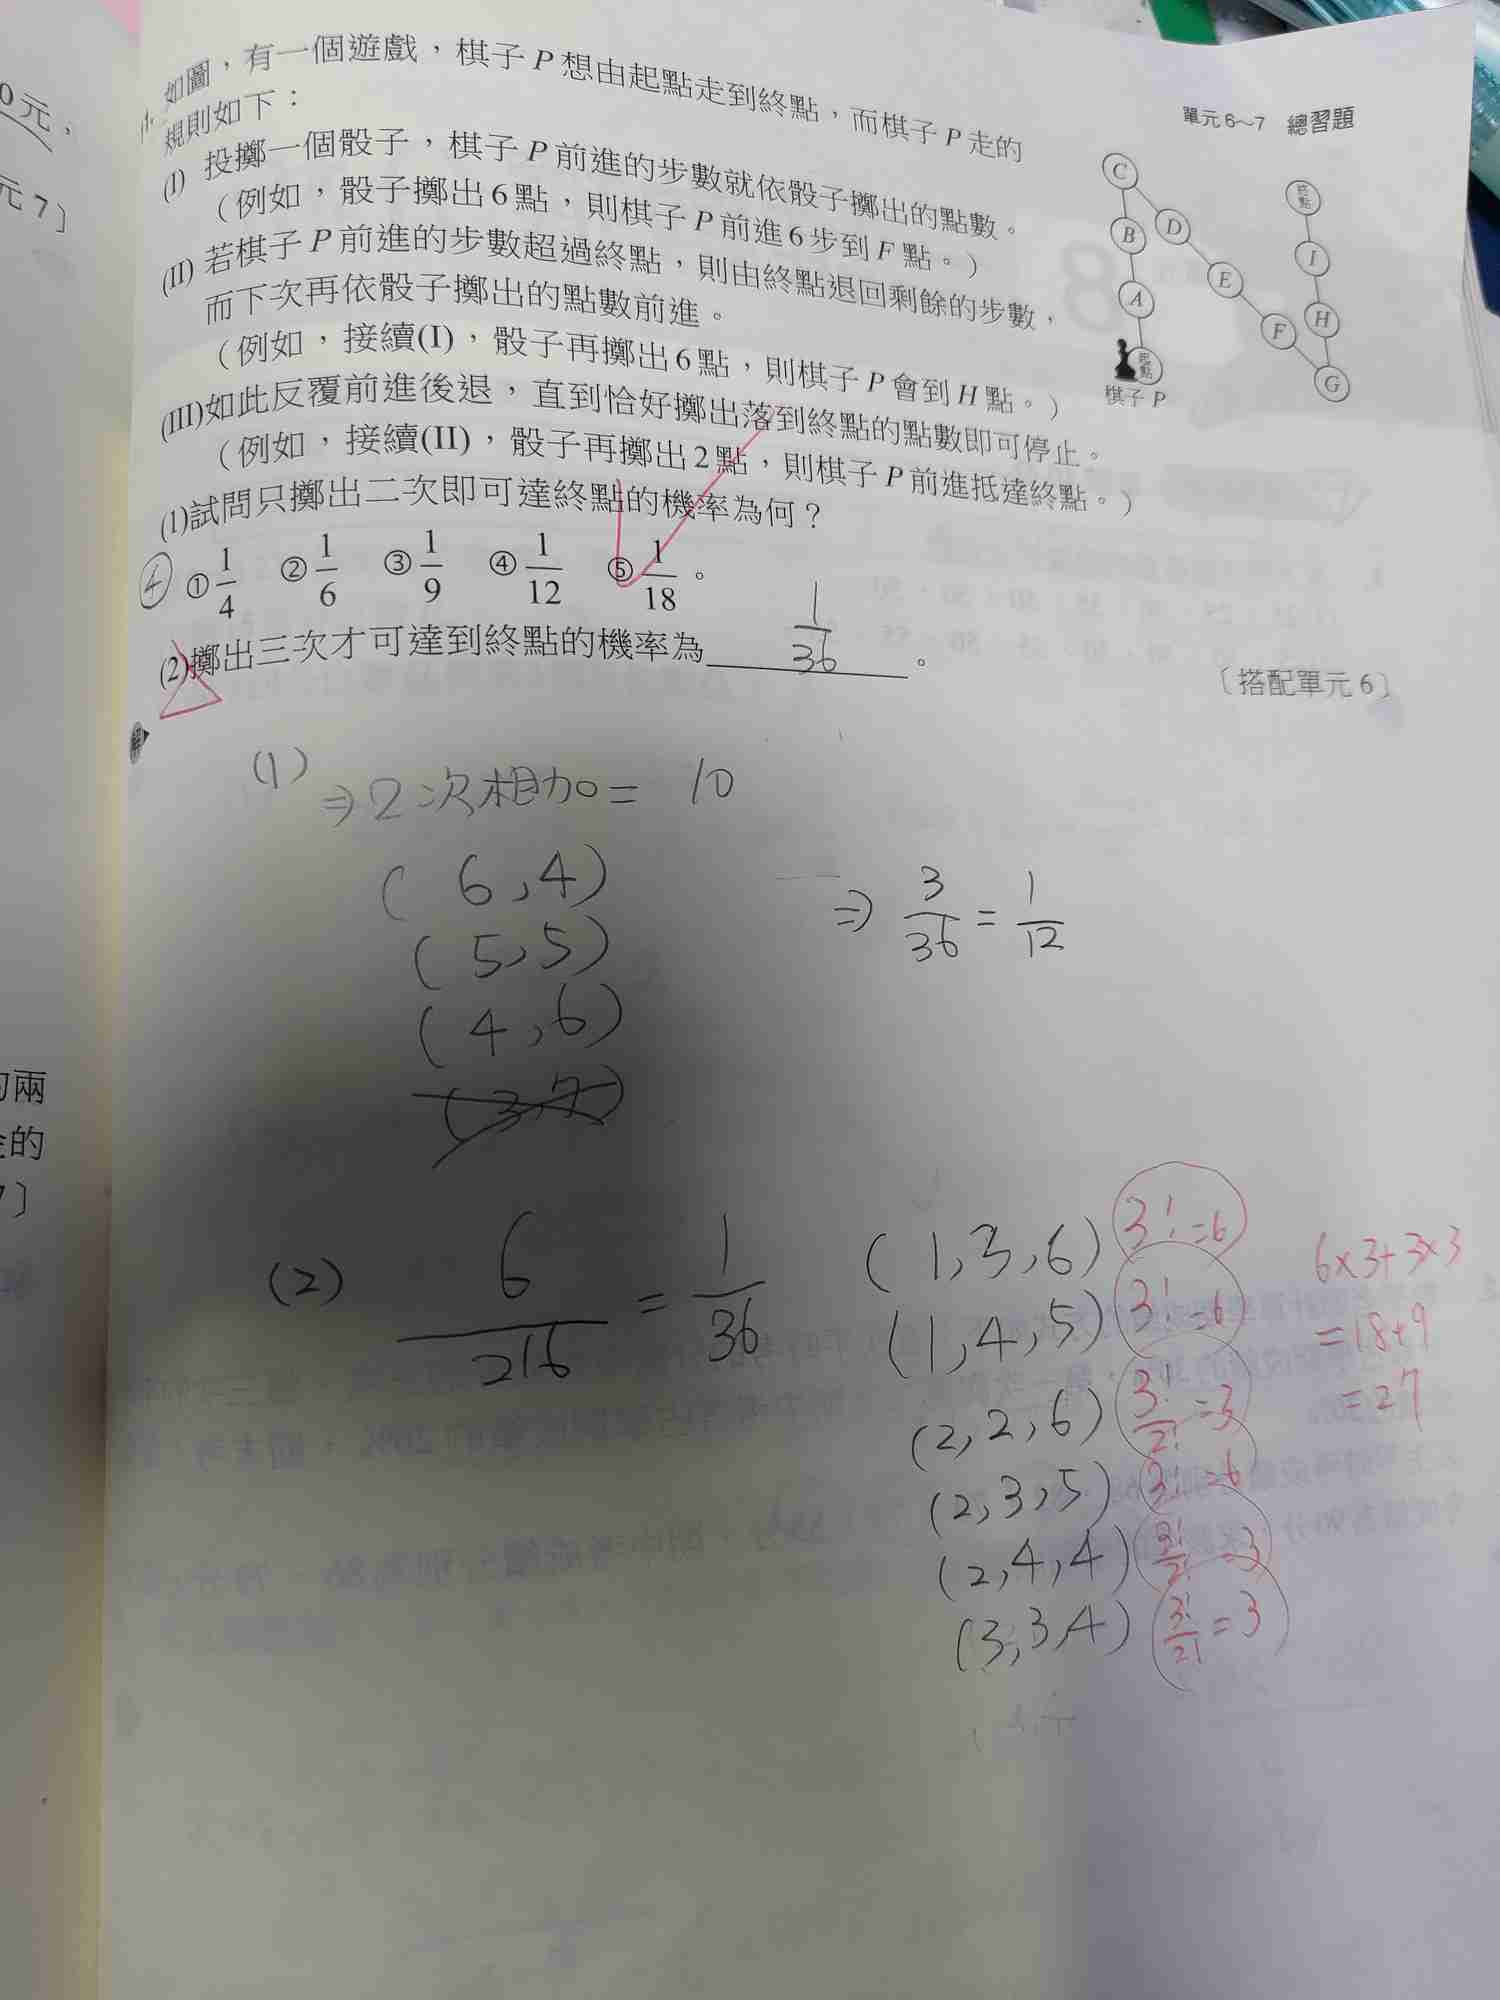 0元，
元7〕
的
7〕
單元6～7 總習題
如圖，有一個遊戲，棋子P想由起點走到終點，而棋子P走的
規則如下：
(I) 投擲一個骰子，棋子P前進的步數就依骰子擲出的點數。
（例如，骰子擲出6點，則棋子P前進6步到F點。）
(II) 若棋子P前進的步數超過終點，則由終點退回剩餘的步數，
而下次再依骰子擲出的點數前進。
（例如，接續(I)，骰子再擲出6點，則棋子P會到H點。）
(III)如此反覆前進後退，直到恰好擲出落到終點的點數即可停止。
（例如，接續(II)，骰子再擲出2點，則棋子P前進抵達終點。）
C
B
A
起點
棋子P
D
E
F
G
H
I
終點
(1)試問只擲出二次即可達終點的機率為何？
4 ①1/4 ②1/6 ③1/9 ④1/12 ⑤1/18。
(2)擲出三次才可達到終點的機率為 1/36 。
〔搭配單元6〕
(1)
⇒2次相加= 10
(6,4)
(5,5)
(4,6)
(3,7)
⇒ 3/36 = 1/12
(2) 6/216 = 1/36
(1,3,6) 3!=6
(1,4,5) 3!=6
(2,2,6) 3!/2!=3
(2,3,5) 3!=6
(2,4,4) 3!/2!=3
(3,3,4) 3!/2!=3
6×3+3×3
=18+9
=27